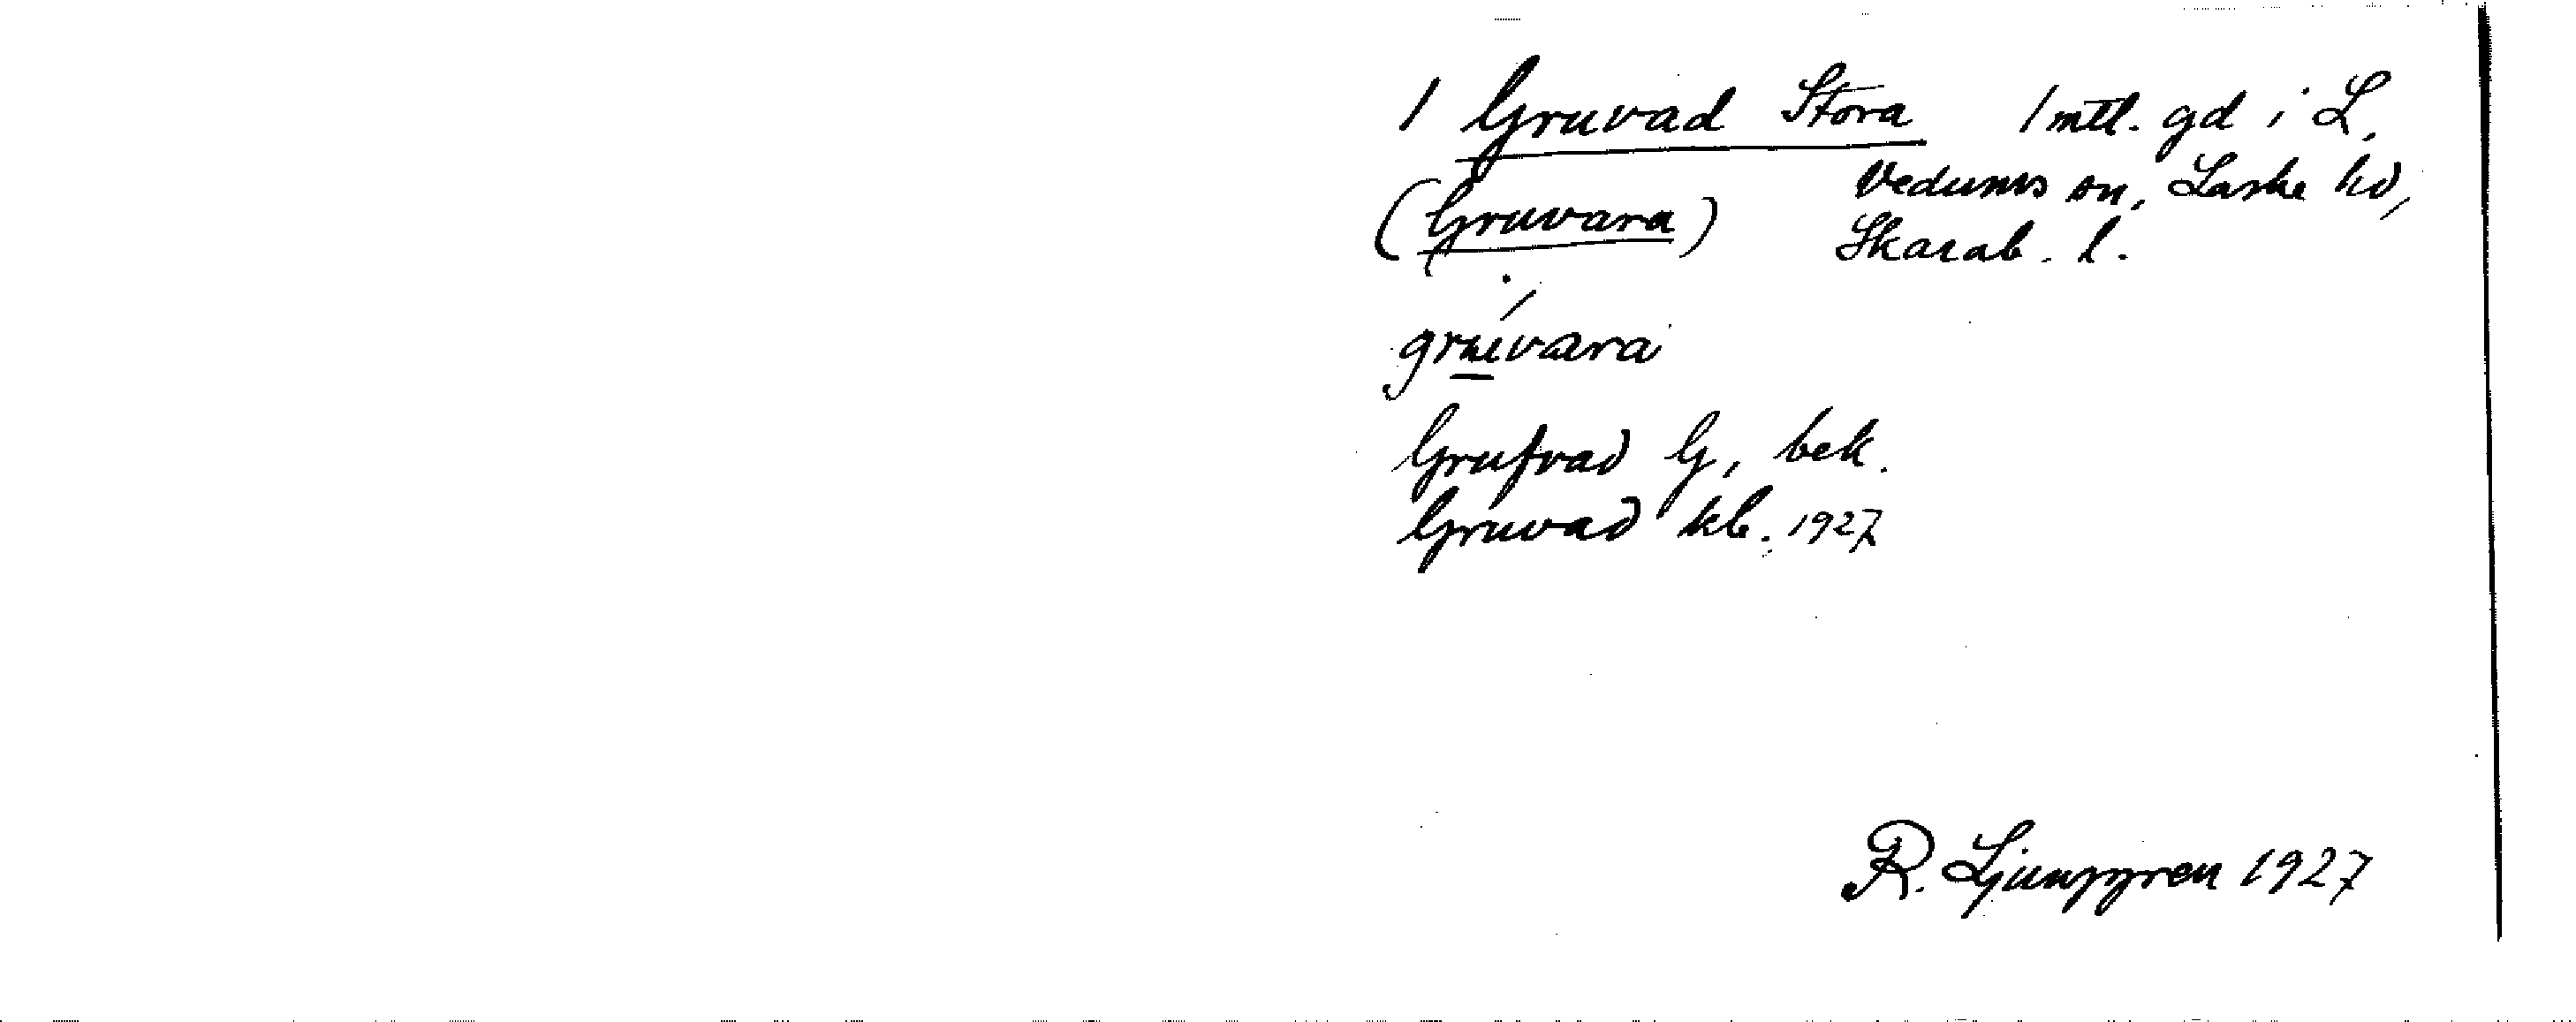 1 Gruvad Stora 1 mtl. gd i L.
(Gruvara) Vedums sn, Laske hd,
Skarab. l.
grúvara
Grufvad G, bek.
Gruvad kb. 1927
R. Ljunggren 1927